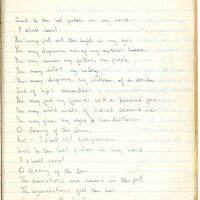 And to the last pulse in my veins
I shall resist
You may put out the light in my eyes
You may deprive me of my mother's kisses
You may curse my father, my people
You may distort my history
You may deprive my children of a smile
And of life's necessities
You may fool my friends with a borrowed face
You may build walls of hatred around me
You may glue my eyes to humiliations
O Enemy of the Sun
But I shall not compromise
And to the last pulse in my veins
I shall resist
O Enemy of the Sun
The decorations are raised in the port
The ejaculations fill the air